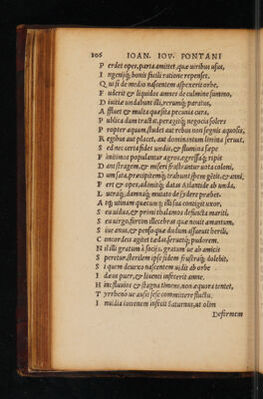 106 IOAN. IOV. PONTANI
P erdet opes, parta amittet, quæ uiribus usus,
I ngenijq; bonis facili ratione repenset.
Q ui si de medio nascentem aspexerit orbe
F uderit & liquidos amnes de culmine summo,
D iuitiæ undabunt illi, rerumq; paratus,
A ffluet & multa quæsita pecunia cura.
P ublica dum tractat, peragitq; negocia solers
P ropter aquam, studet aut rebus non segnis aquosis,
R egibus aut placet, aut dominantum limina seruit,
S ed nec certa fides undis, & flumina sæpe
F initimos populantur agros, egressaq; ripis
D ant stragem, & miseri frustrantur uota coloni,
D um sata, præcipitemq; trahunt spem gletis, & anni.
P eri & opes, domitiq; datas Atlantide ab unda,
L uxus, damnisq; mutato de sidere præbet.
A tq; utinam quæcunq; illi sua contigit uxor,
S eu uidua, & primi thalamos defuncta mariti,
S eu uirgo, fortem illecebræ quæ nouit amantum,
S iue anus, & penso quæ dudum assueuit herili,
C oncordes agitet tædas, seruetq; pudorem.
N il illi gratum à socijs, gratum ue ab amicis
S peretur, sterilem ipse fidem frustraq; dolebit,
S i quem decurso nascentem uidit ab orbe
I dæus puer, & liuenti infecerit amne.
H inc fluuios & stagna timens, non æquora tentet,
T yrrheno ue ausit sese committere fluctu.
I nuidia iuuenem infecit Saturnus, at olim
Defirnem